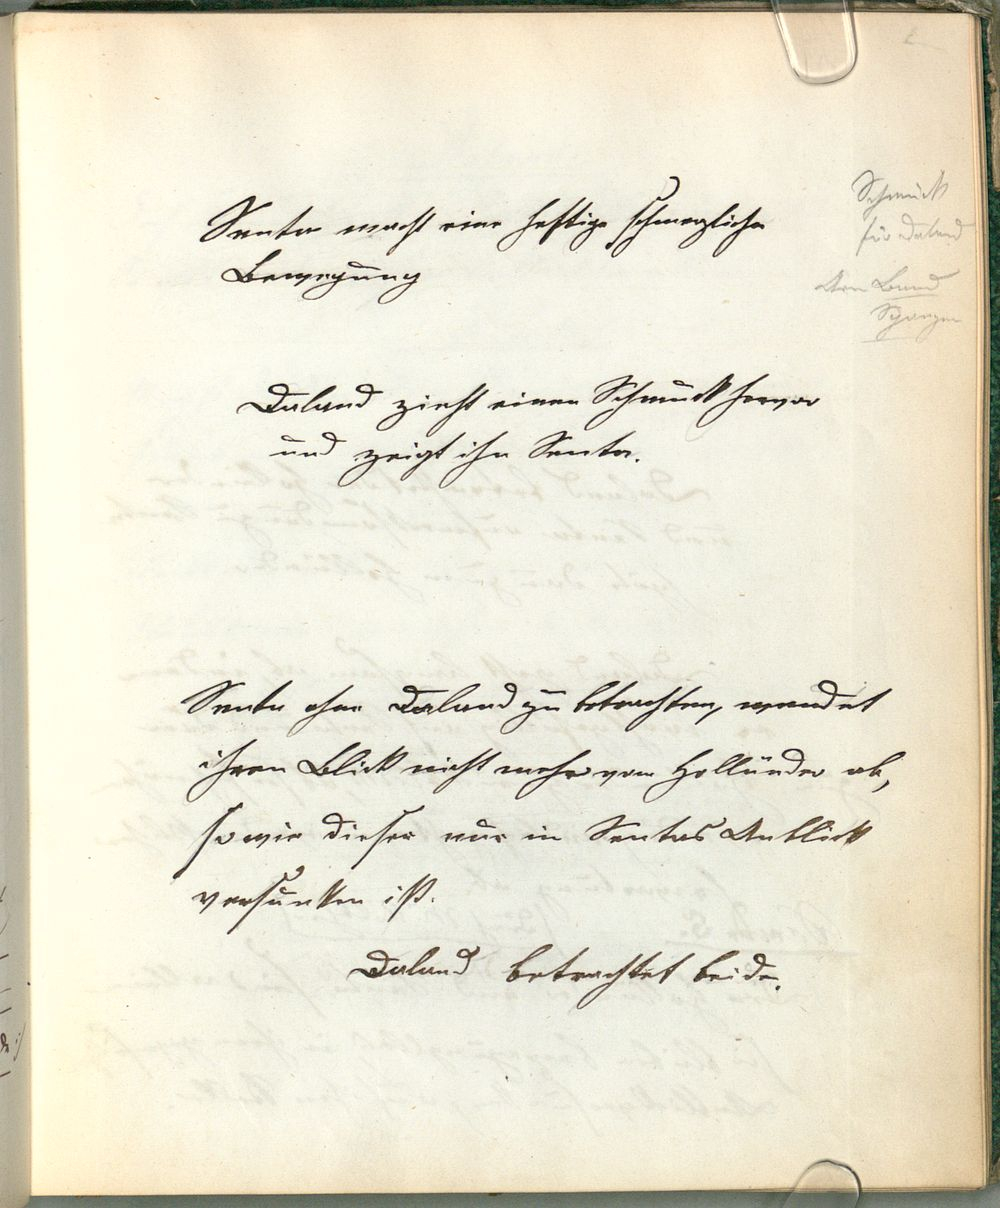 Schmuck
für Daland
Arm Band
Spangen
Senta macht eine heftige schmerzliche
Bewegung
Daland zieht einen Schmuck hervor
und zeigt ihn Senta.
Senta ohne Daland zu betrachten, wendet
ihren Blick nicht mehr vom Holländer ab,
sowie dieser nur in Sentas Anblick
versunken ist.
Daland betrachtet beide.